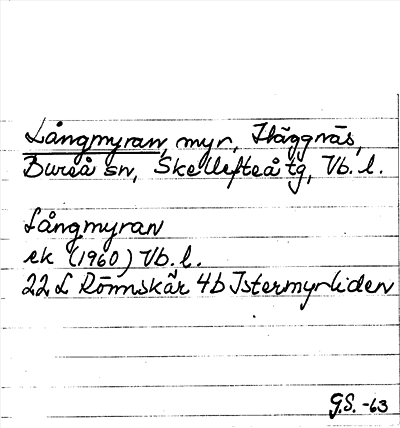 Långmyran, myr, Häggnäs,
Bureå sn, Skellefteå tg, Vb. l.
Långmyran
ek (1960) Vb. l.
22 L Rönnskär 4b Istermyrliden
G.S. -63